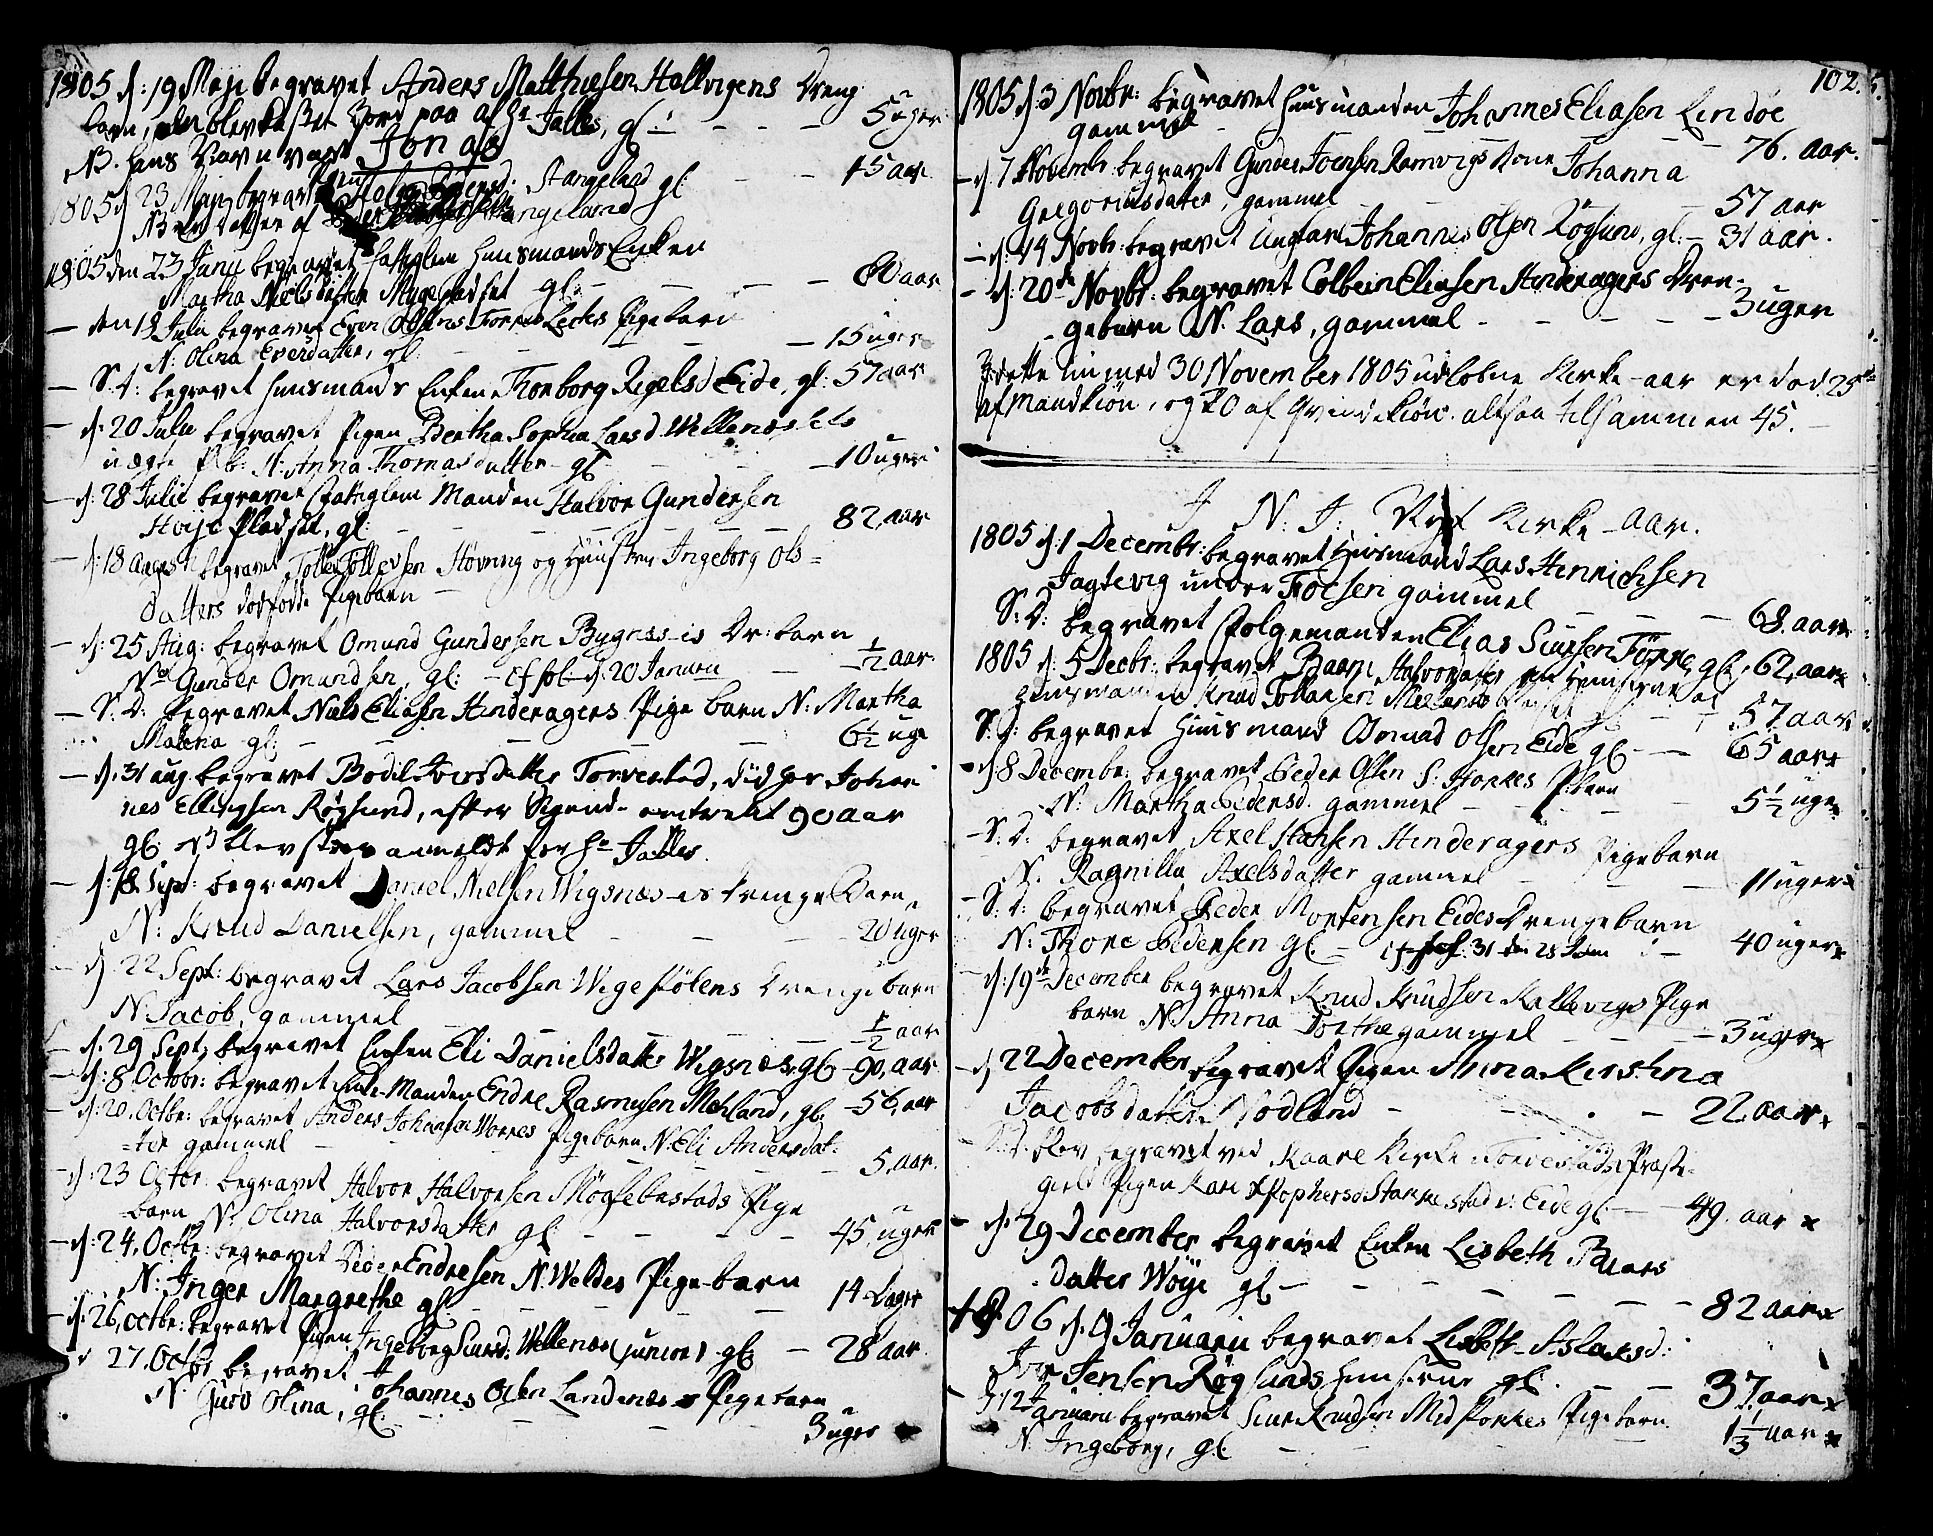 1805 d: 19 Maji begravet Anders Matthiesen Hallvigens Dreng
barn, blev kastet Jord paa af Hr Jalles, gl: - - - 5 uger
NB. hans Navn var Jonas
1805 d 23 Maji begravet Stangeland gl - - 45 aar
NB Stangeland
1805 den 23 Junii begravet fattiglem Huusmands Enken
Martha Nielsdatter Mygepladset gl: - - - 80 aar
— den 19 Julii begravet Even Olsens Torres Pigebarn
N: Olina Eversdatter, gl: - - - 15 uger
— S. D: begravet Huusmands Enken Thorborg Rigelsd Eide, gl: 57 aar
— d: 20 Julii begravet Pigen Bertha Sophia Larsd. Wellenæs
uægte N: Anna Thomasdatter gl - - 10 uger
— d: 28 Julii begravet fattiglem Manden Halvor Gundersen
Høyse Pladset, gl: - - - 82, aar
— d: 18 August begravet Tollef Tollefsen Hovring og Huustrue Ingeborg Ols=
datters dødfødde Pigebarn —
— d: 25 Aug: begravet Omund Gundersen Bygnæs-is Dr: barn
No Gunder Omundsen, gl: - cf fol - d: 20 Januarii - 1/2 aar.
— S. D: begravet Niels Eliasen Hinderagers Pige barn N: Martha
Malena gl: - - - 6 1/2 uge
— d: 31 aug. begravet Bodil Iversdatter Torvestad, død hos Johan
nes Ellingsen Røgsund, efter Sigende omtrent 90 aar
gl. NB blev anmeldt for Hr Jalles.
— d: 18 Sept: begravet Daniel Nielsen Wigsnæs-es Drenge Barn,
N: Knud Danielsen, gammel - - - 20 uger
— d. 22 Sept: begravet Lars Jacobsen Wigeskølens Drengebarn
N. Jacob, gammel - - - 1/2 aar
— d. 29 Sept: begravet Enken Eli Danielsdatter Wigsnæs gl - 90, aar
— d: 8 Octobr: begravet Manden Endre Rasmusen Mehland, gl: - 56, aar
— d: 20, Octbr: begravet Anders Johansen Worres Pigebarn N: Eli Andersdat-
=ter gammel - - - 5, aar.
— d: 23 Octor: begravet Halvor Halvorsen Møglebustads Pige
-barn N: Olina Halvorsdatter gl: - - - 45, uger
— d: 24, Octbr: begravet Peder Endresen N: Weldes Pige-barn
N: Inger Margrethe gl - - - 14 Dager
— d: 26, octbr: begravet Pigen Ingeborg Siursd: Wellenæs (junior) gl: - 28 aar.
d 27. Octor begravet Johannes Olsen Landenæs Pigebarn
N: Guro Olina, gl: - - - 3 uger
102.
1805 d 3 Novbr: begravet Huusmanden Johannes Eliasen Lindøe
gammel - - - 76. aar.
— d. 7 Novembr begravet Gunder Joensen Ramvigs Kone Johanna
Gregoriusdatter, gammel - - 57 aar
— d: 14 Novbr: begravet Ungkarl Johannes Olsen Røgsund, gl: - 31 aar.
— d: 20de Novbr: begravet Colbein Eliasen Hinderagers Dren-
gebarn N. Lars, gammel - - - 3 uger
I dette nu med 30 November 1805 udløbne Kirke-aar er død 25
af Mandkiøn, og 20 af Qvindekiøn. altsaa tilsammen 45.
I N: J: Nyt Kirke-Aar.
1805 d: 1 Decembr: begravet Huusmand Lars Hinrichsen
Jagtevig under Foesen gammel - - - 68. aar
S: D: begravet Folgemanden Elias Siursen Førre, gl: 62, aar
1805 d. 5 Decbr: begravet Baarni Halvordatter en Huustrue af
Huusmanden Knud Tollaksen gl: - - 57. aar
S: D: begravet Huusmand Omund Olsen Eide gl — - 65 aar
— d: 8 Decembr: begravet Peder Olsen S: Hopkes P:barn
N: Martha Pedersd. gammel - - - 5 1/2 uger
— S: D: begravet Axel Hansen Hinderagers Pigebarn
N. Ragnilla Axelsdatter gammel - - - 11 uger
— S: D: begravet Peder Mortensen Eides Drengebarn
N: Thore Pedersen gl. - cf fol: 31 den 28 - - 40 uger
— d: 19de December begravet Knud Knudsen Kallevigs Pige
barn N: Anna Dorthe gammel - - - 3 uger
— d 22 December begravet Pigen Anna Kirstina
Jacobsdatter Nødland - - - 22. aar
— S: D: blev begravet ved Kaare Kirke Torvestads Præste-
gield Pigen Kari Xstophersd Stakkestad v: Eide gl - - 49. aar x
— d: 29 December begravet Enken Lisbeth Baars
datter Wøye gl - - - - 82 aar
1806 d. 9 Januarii begravet Lisbeth Aslaksd:
Joen Jensen Røgsunds Huustrue gl. - - 37. aar
— d 12te Januarii begravet Siur Knudsen Pigebarn
N. Ingeborg, gl: - - - 1 1/3 aar